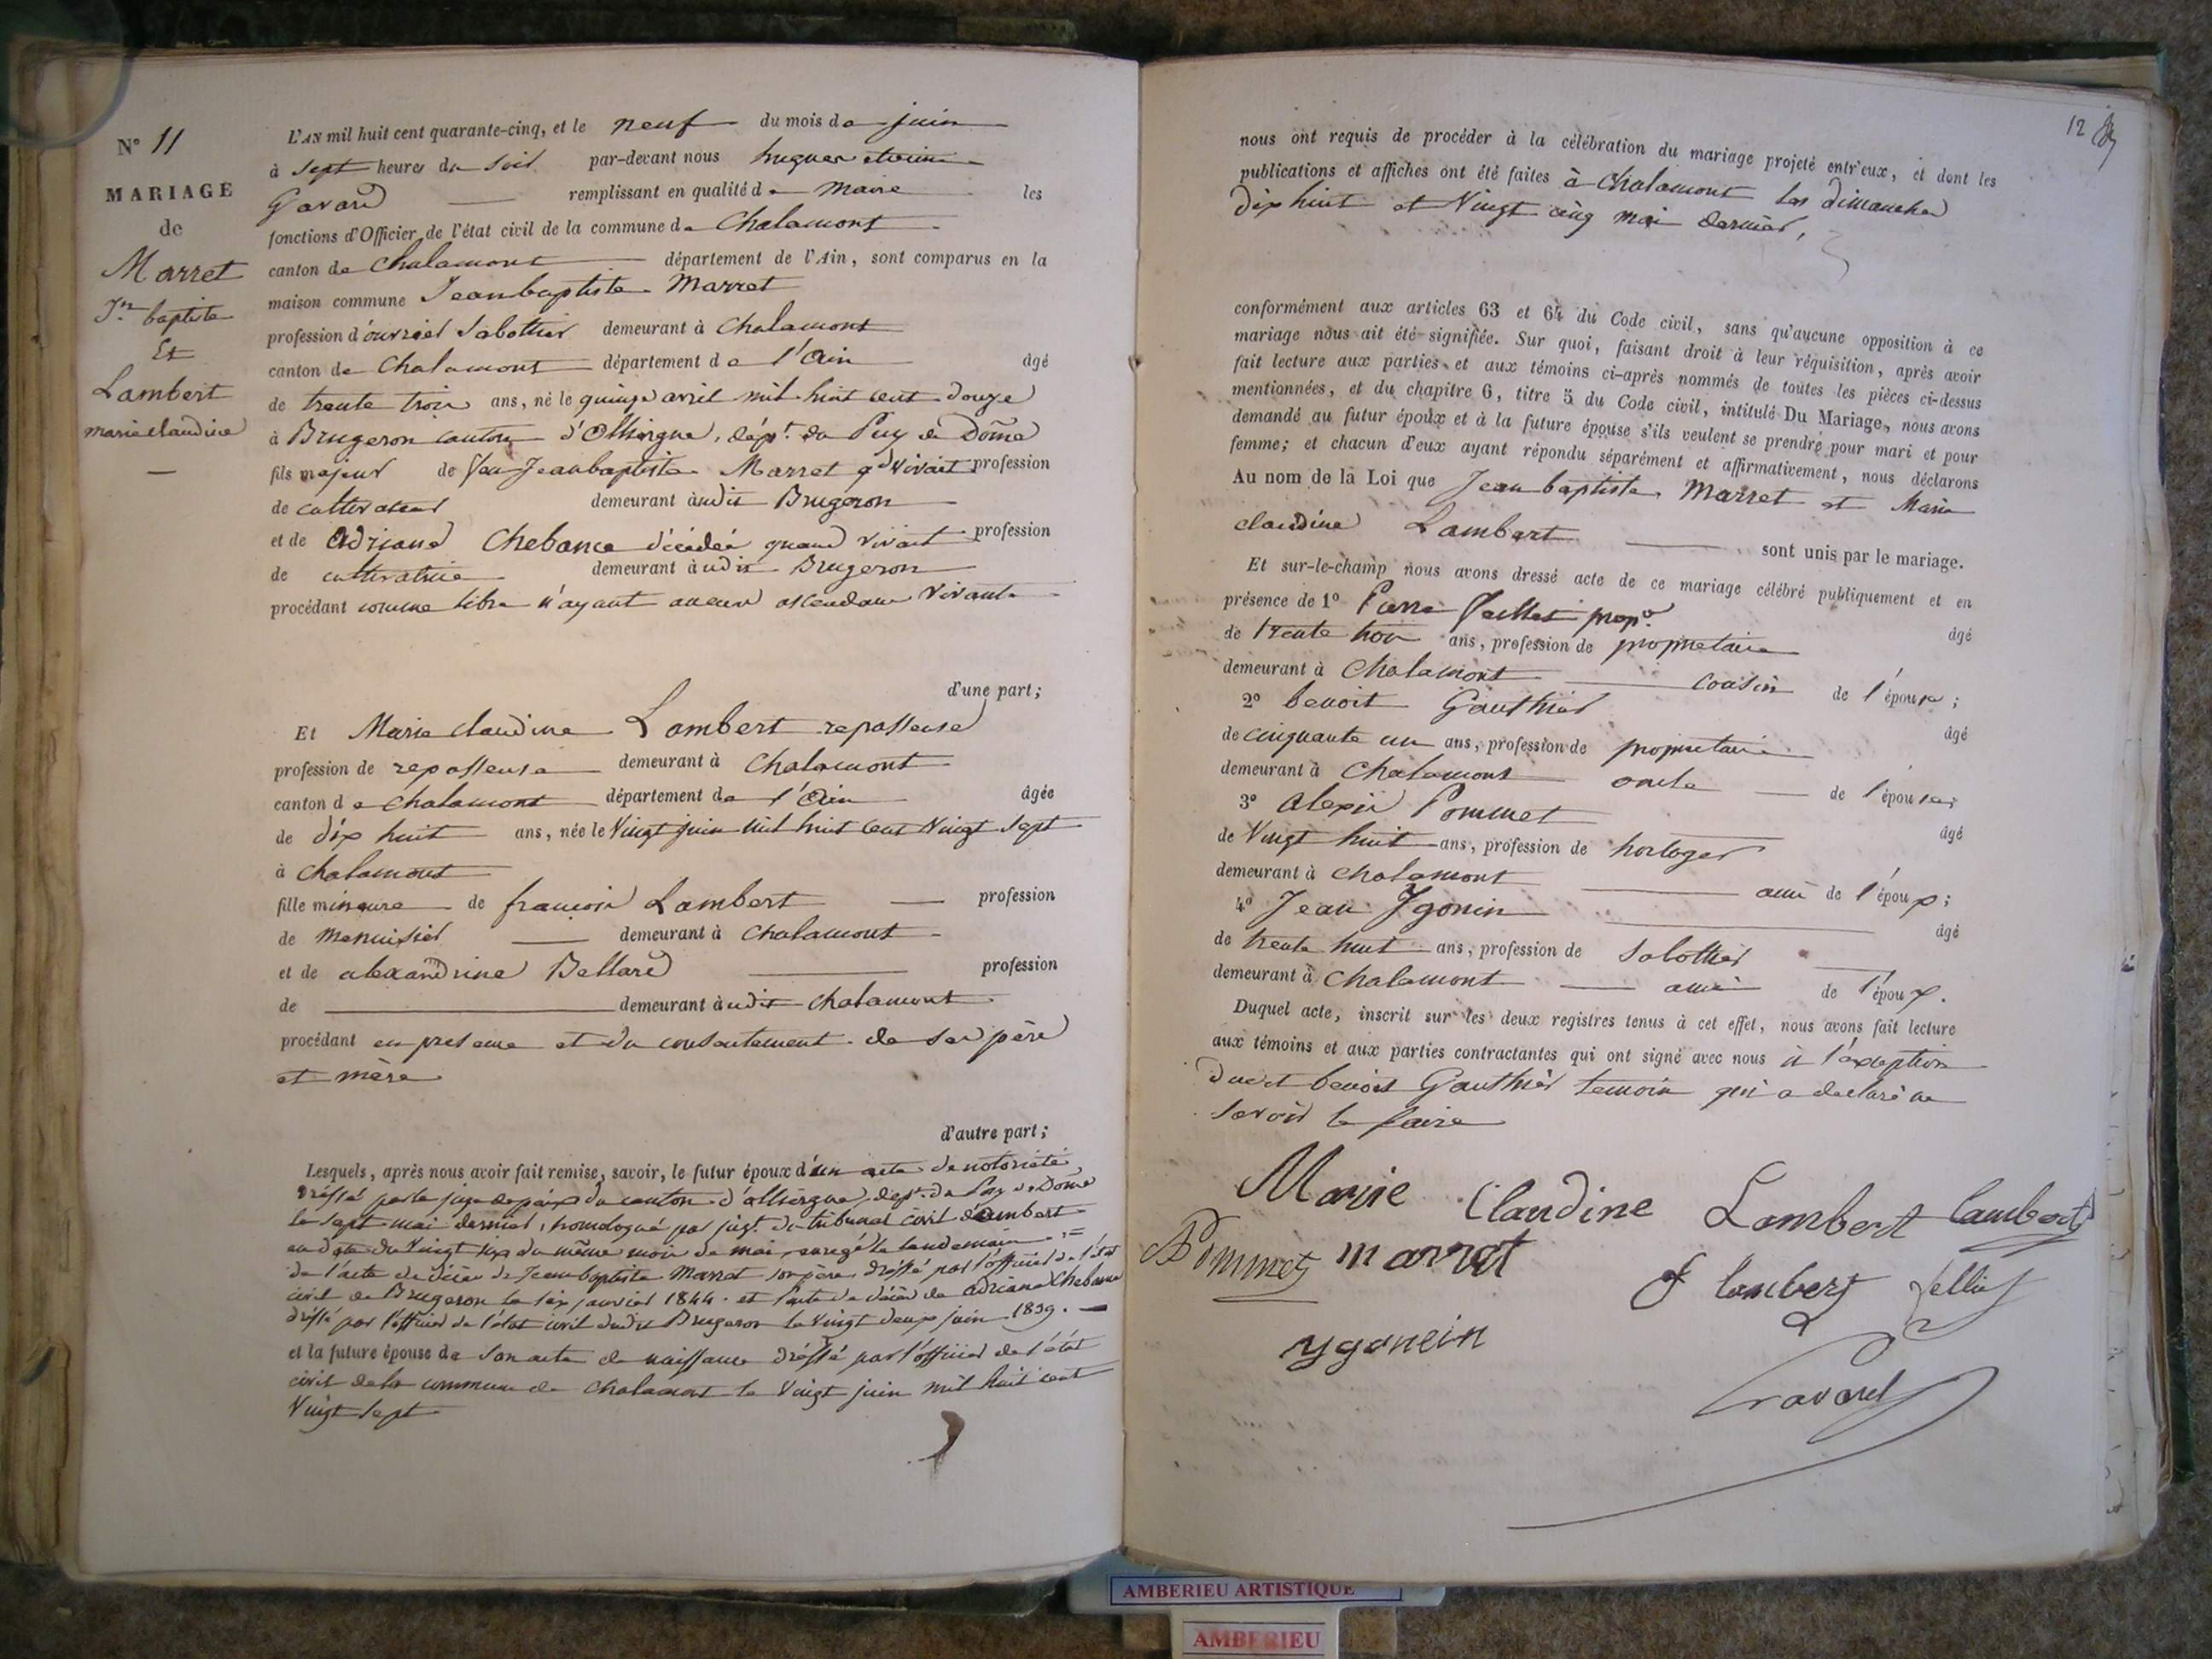 N° 11
MARIAGE
de
Marret
Jn baptiste
Et
Lambert
marie claudine
L'AN mil huit cent quarante-cinq, et le neuf du mois de juin
à sept heures du soir par-devant nous hugues
Gavard remplissant en qualité de maire les
fonctions d'Officier de l'état civil de la commune de Chalamont
canton de Chalamont département de l'Ain, sont comparus en la
maison commune Jeanbaptiste Marret
profession d'ouvrier Sabottier demeurant à Chalamont
canton de Chalamont département de l'Ain âgé
de trente trois ans, né le quinze avril mil huit cent douze
à Brugeron canton d'Olliergue, dépt. du Puy de Dôme
fils majeur de feu Jeanbaptiste Marret qd vivait profession
de cultivateur demeurant àudit Brugeron
et de Adriane Chebance décédée quand vivait profession
de cultivatrice demeurant àudit Brugeron
procédant comme libre n'ayant aucun ascendant vivant
d'une part;
Et Marie claudine Lambert repasseuse
profession de repasseuse demeurant à Chalamont
canton de Chalamont département de l'Ain âgée
de dix huit ans, née le Vingt juin mil huit cent Vingt sept
à Chalamont
fille mineure de françois Lambert profession
de menuisier demeurant à Chalamont
et de alexandrine Bellard profession
de demeurant àudit Chalamont
procédant en presence et du consentement de ses père
et mère
d'autre part;
Lesquels, après nous avoir fait remise, savoir, le futur époux d'un acte de notoriété
dréssé par le juge de paix du canton d'olliergue, dept. du Puy de Dome
le sept mai dernier, homologué par jugt. du tribunal civil d'ambert
en date du Vingt six du même mois de mai, enregé le lendemain
de l'acte de décès de Jeanbaptiste Marret son père dréssé par l'officier de l'état
civil de Brugeron le six janvier 1844. et l'acte de décès de adriane Chebance
dréssé par l'officier de l'état civil dudit Brugeron le Vingt deux juin 1839.
et la future épouse de son acte de naissance dréssé par l'officier de l'état
civil de la commune de Chalamont le Vingt juin mil huit cent
Vingt sept
12
nous ont requis de procéder à la célébration du mariage projeté entr'eux, et dont les
publications et affiches ont été faites à Chalamont les dimanches
dix huit et Vingt cinq mai dernier,
conformément aux articles 63 et 64 du Code civil, sans qu'aucune opposition à ce
mariage nous ait été signifiée. Sur quoi, faisant droit à leur réquisition, après avoir
fait lecture aux parties et aux témoins ci-après nommés de toutes les pièces ci-dessus
mentionnées, et du chapitre 6, titre 5 du Code civil, intitulé Du Mariage, nous avons
demandé au futur époux et à la future épouse s'ils veulent se prendre pour mari et pour
femme; et chacun d'eux ayant répondu séparément et affirmativement, nous déclarons
Au nom de la Loi que Jean baptiste Marret et Marie
claudine Lambert sont unis par le mariage.
Et sur-le-champ nous avons dressé acte de ce mariage célébré publiquement et en
présence de 1° Pierre propre. âgé
de trente trois ans, profession de proprietaire
demeurant à Chalamont cousin de l'épouse;
2° benoit Gauthier âgé
de cinquante un ans, profession de proprietaire
demeurant à Chalamont oncle de l'épouse;
3° Alexis Pommet âgé
de Vingt huit ans, profession de horloger
demeurant à Chalamont ami de l'époux;
4° Jean Ygonin âgé
de trente huit ans, profession de sabottier
demeurant à Chalamont ami de l'époux.
Duquel acte, inscrit sur les deux registres tenus à cet effet, nous avons fait lecture
aux témoins et aux parties contractantes qui ont signé avec nous à l'exception
dudit benoit Gauthier temoin qui a declaré ne
savoir le faire
Marie Claudine Lambert lambert
Pommet marret f lambert
ygonein
Gavard
AMBERIEU ARTISTIQUE
AMBERIEU